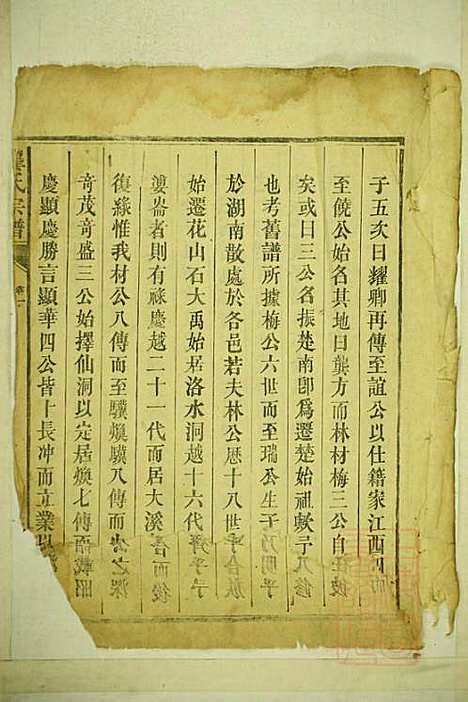 子五次曰耀卿再傳至誼公以仕籍家江西
至饒公始名其地曰龔方而林材梅三公自
矣或曰三公名振楚南卽爲遷楚始祖歟
也考舊譜所據梅公六世而至瑞公生
於湖南散處於各邑若夫林公歷十八世
始遷花山石大禹始居洛水洞越十六代
婁崙者則有祿慶越二十一代而居大溪
復緣惟我材公八傳而至驥煥驥八傳而
奇茂奇盛三公始擇仙洞以定居煥七傳而
慶顯慶勝言顯華四公皆十長冲而立業以
龔氏宗譜 卷一